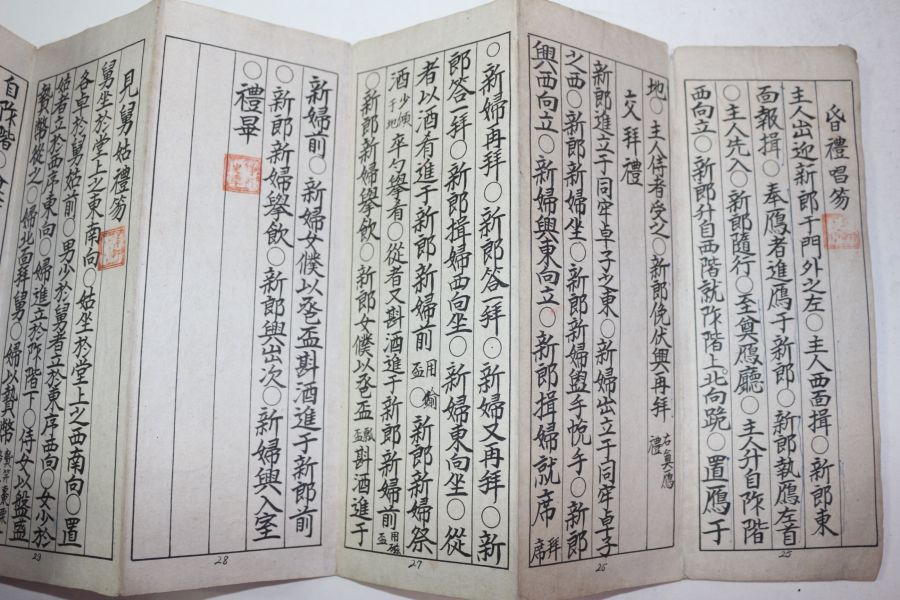 昏禮唱笏
主人出迎新郎于門外之左○主人西面揖○新郎東
面報揖○奉鴈者進鴈于新郎○新郎執鴈左首
○主人先入○新郎隨行○至奠鴈廳○主人升自阼階
西向立○新郎升自西階就阼階上北向跪○置鴈于
25
地○主人侍者受之○新郎俛伏興再拜 右奠鴈禮
交拜禮
新郎進立于同牢卓子之東○新婦出立于同牢卓子
之西○新郎新婦坐○新郎新婦盥手帨手○新郎
興西向立○新婦興東向立○新郎揖婦就席 拜席
26
○新婦再拜○新郎答一拜○新婦又再拜○新
郎答一拜○新郎揖婦西向坐○新婦東向坐○從
者以酒肴進于新郎新婦前 用盃○新郎新婦祭
酒 少傾于地 卒勺擧肴○從者又斟酒進于新郎新婦前 用盃
○新郎新婦擧飮○新郎女僕以卺盃 瓢盃 斟酒進于
27
新婦前○新婦女僕以卺盃斟酒進于新郎前
○新郎新婦擧飮○新郎興出次○新婦興入室
○禮畢
28
見舅姑禮笏
舅坐於堂上之東南向○姑坐於堂上之西南向○置
各卓於舅姑前○男少於舅者立於東序西向○女少於
姑者立於西序東向○婦進立於阼階下○侍女以盤盛
贄幣從之○婦北面拜舅○婦以贄幣
自阼階○
29